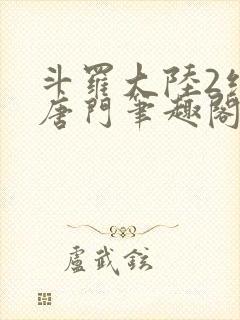 斗羅大陸2絕
唐門筆趣閣
盧武鉉